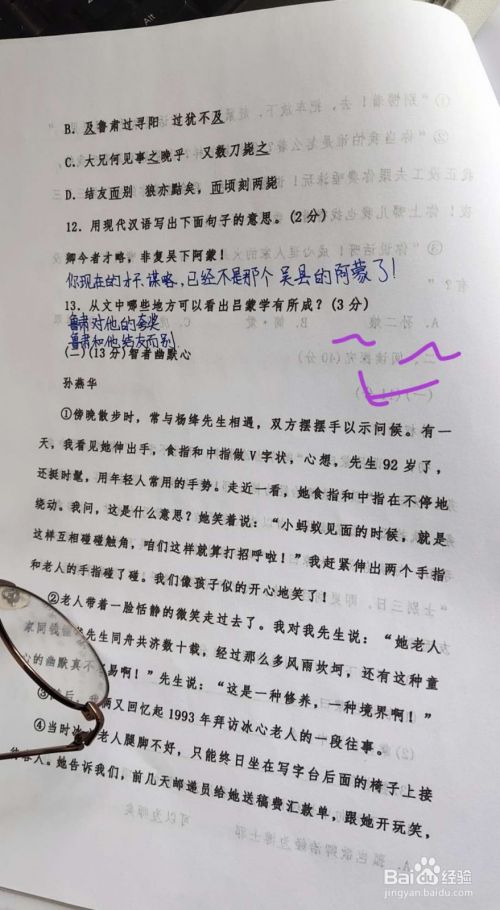 B. 及鲁肃过寻阳 过犹不及
C. 大兄何见事之晚乎 又数刀毙之
D. 结友而别 狼亦黠矣，而顷刻两毙
12. 用现代汉语写出下面句子的意思。(2分)
卿今者才略，非复吴下阿蒙！
你现在的才干谋略，已经不是那个吴县的阿蒙了！
13. 从文中哪些地方可以看出吕蒙学有所成？(3分)
鲁肃对他的夸奖
鲁肃和他结友而别
(二)(13分)智者幽默心
孙燕华
①傍晚散步时，常与杨绛先生相遇，双方摆摆手以示问候。有一
天，我看见她伸出手，食指和中指做V字状，心想，先生92岁了，
还挺时髦，用年轻人常用的手势。走近一看，她食指和中指在不停地
绕动。我问，这是什么意思？她笑着说：“小蚂蚁见面的时候，就是
这样互相碰碰触角，咱们这样就算打招呼啦！”我赶紧伸出两个手指
和老人的手指碰了碰。我们像孩子似的开心地笑了！
②老人带着一脸恬静的微笑走过去了。我对我先生说：“她老人
家同钱 先生同舟共济数十载，经过那么多风雨坎坷，还有这种童
心的幽默真不 易啊！”先生说：“这是一种修养，一种境界啊！”
③ 后，我俩又回忆起1993年拜访冰心老人的一段往事。
④当时冰 老人腿脚不好，只能终日坐在写字台后面的椅子上接
客人。她告诉我们，前几天邮递员给她送稿费汇款单，跟她开玩笑，
Baidu经验
jingyan.baidu.com